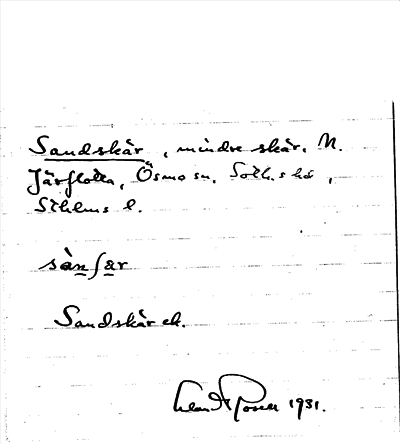 Sandskär, mindre skär, N.
Järflotta, Ösmo sn, Soth. s hd,
Sthlms l.
sàn∫ar
Sandskär ek.
1931.